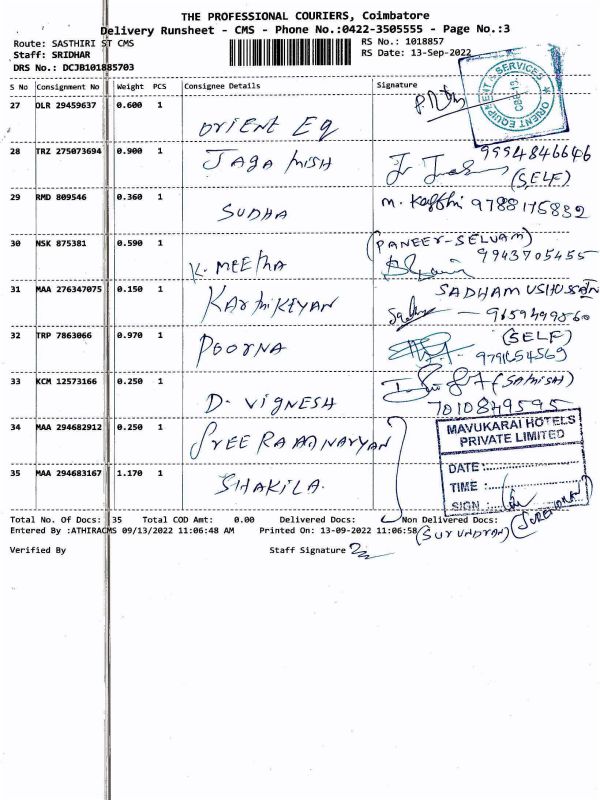 THE PROFESSIONAL COURIERS, Coimbatore
Delivery Runsheet - CMS - Phone No.:0422-3505555 - Page No.:3
Route: SASTHIRI ST CMS
RS No.: 1018857
Staff: SRIDHAR
RS Date: 13-Sep-2022
DRS No.: DCJB101885703
S No Consignment No Weight PCS Consignee Details Signature
27 DLR 29459637 0.600 1 ORIENT EQ
ORIENT EQUIPMENT & SERVICES
28 TRZ 275073694 0.900 1 JAGA MISH
9994846646
(SELF)
29 RMD 809546 0.360 1 SUDHA
9788175832
30 NSK 875381 0.590 1 K. MEETHA
(PANEER-SELVAM)
9943705455
31 MAA 276347075 0.150 1 KARTHIKEYAN
SADHAM USHUSSAIN
32 TRP 7863066 0.970 1 POORNA
(SELF)
33 KCM 12573166 0.250 1 D. VIGNESH
(SATHISH)
7010849595
34 MAA 294682912 0.250 1 SREE RAMANARYAN
35 MAA 294683167 1.170 1 SHAKILA.
MAVUKARAI HOTELS
PRIVATE LIMITED
DATE :
TIME :
SIGN :
Total No. Of Docs: 35 Total COD Amt: 0.00 Delivered Docs: Non Delivered Docs:
Entered By :ATHIRACMS 09/13/2022 11:06:48 AM Printed On: 13-09-2022 11:06:58
(SURUNDRAN)
Verified By Staff Signature